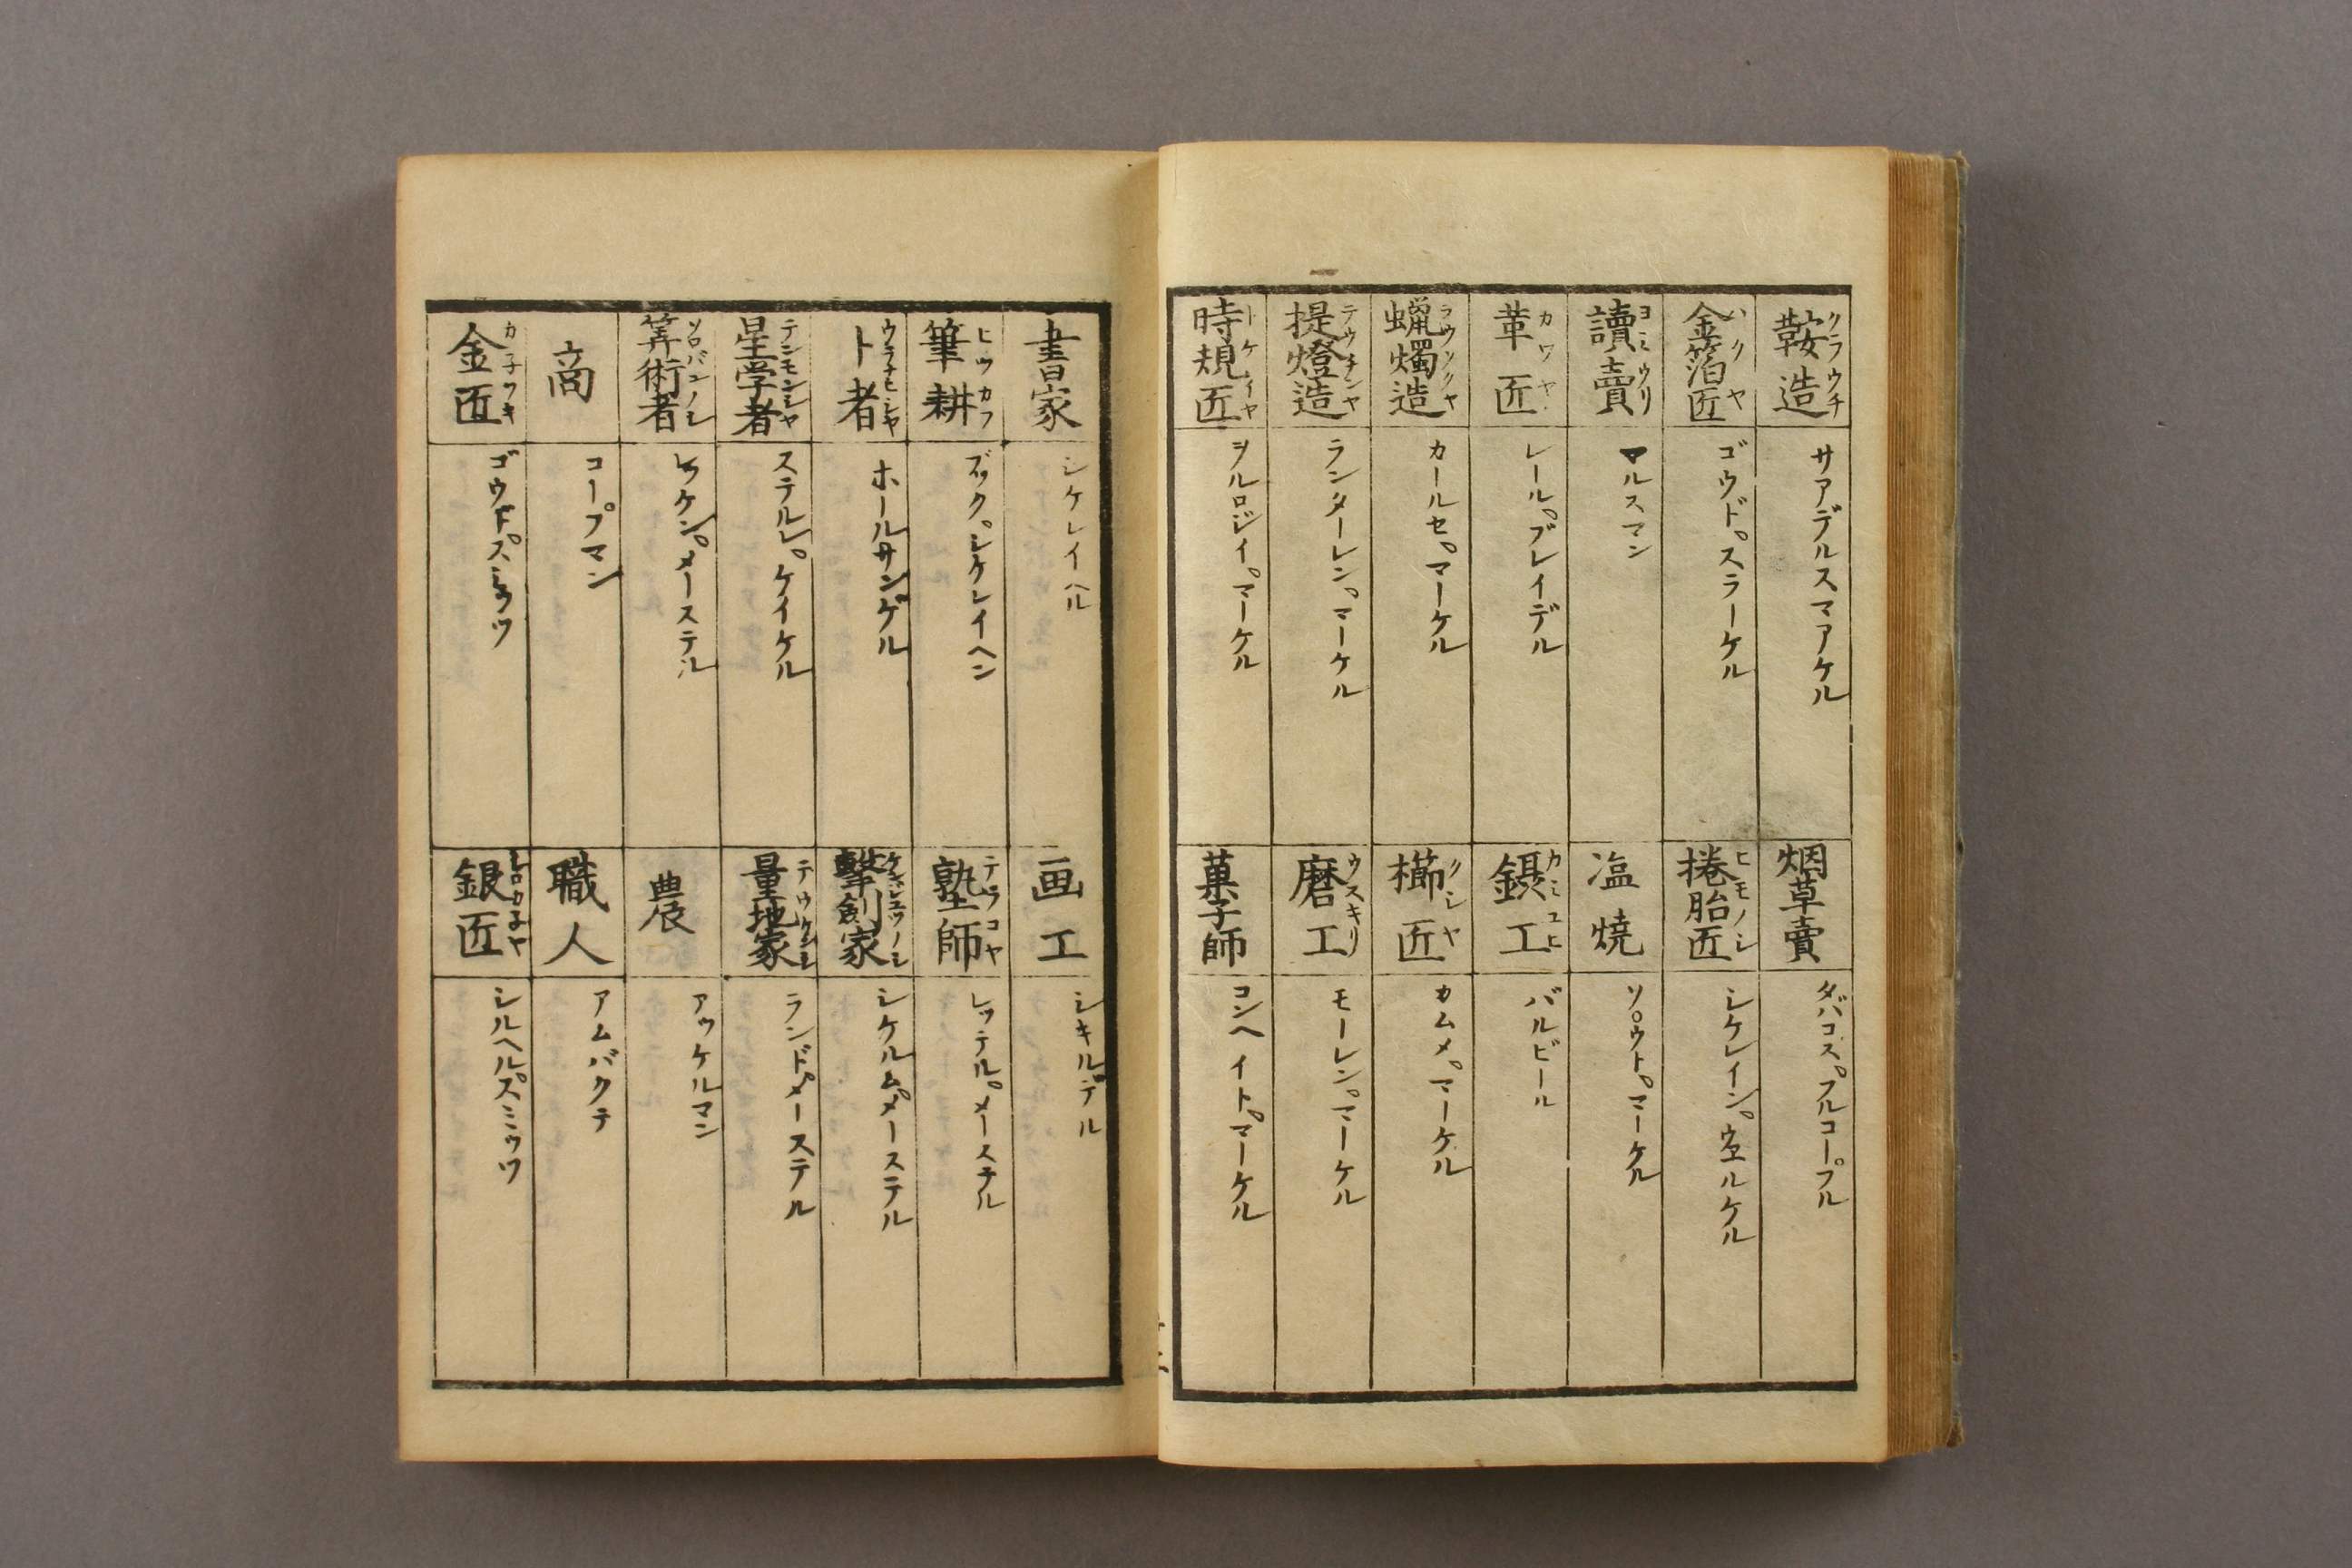 鞍造 クラウチ
サアデルスマアケル
金箔匠 ハクヤ
ゴウド。スラーケル
讀賣 ヨミウリ
マルスマン
革匠 カワヤ
レール。ブレイデル
蝋燭造 ラウソクヤ
カールセ。マーケル
提燈造 テウチンヤ
ランターレン。マーケル
時規匠 トケイヤ
ヲルロジイ。マーケル
烟草賣
タバコス。フルコープル
捲胎匠 ヒモノシ
シケレイン。ウエルケル
塩焼
ソ。ウト。マーケル
鑷工 カミユヒ
バルビール
櫛匠 クシヤ
カムメ。マーケル
磨工 ウスキリ
モーレン。マーケル
菓子師
コンヘイト。マーケル
書家
シケレイヘル
筆耕 ヒツカフ
ブック。シケレイヘン
卜者
ホールサンゲル
星学者 テンモンシヤ
ステルレ。ケイケル
筭術者 ソロバンノシ
レケン。メーステル
商
コープマン
金匠
ゴウド。スミッツ
画工
シキルデル
塾師 テラコヤ
レッテル。メーステル
撃劍家
シケルム。メーステル
量地家
ランド。メーステル
農
アッケルマン
職人
アムバクテ
銀匠
シルヘル。スミッツ